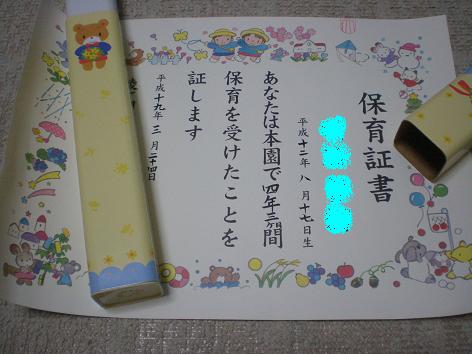 保育証書
平成十二年八月十七日生
あなたは本園で四年三ヶ間
保育を受けたことを
証します
平成十九年三月二十四日